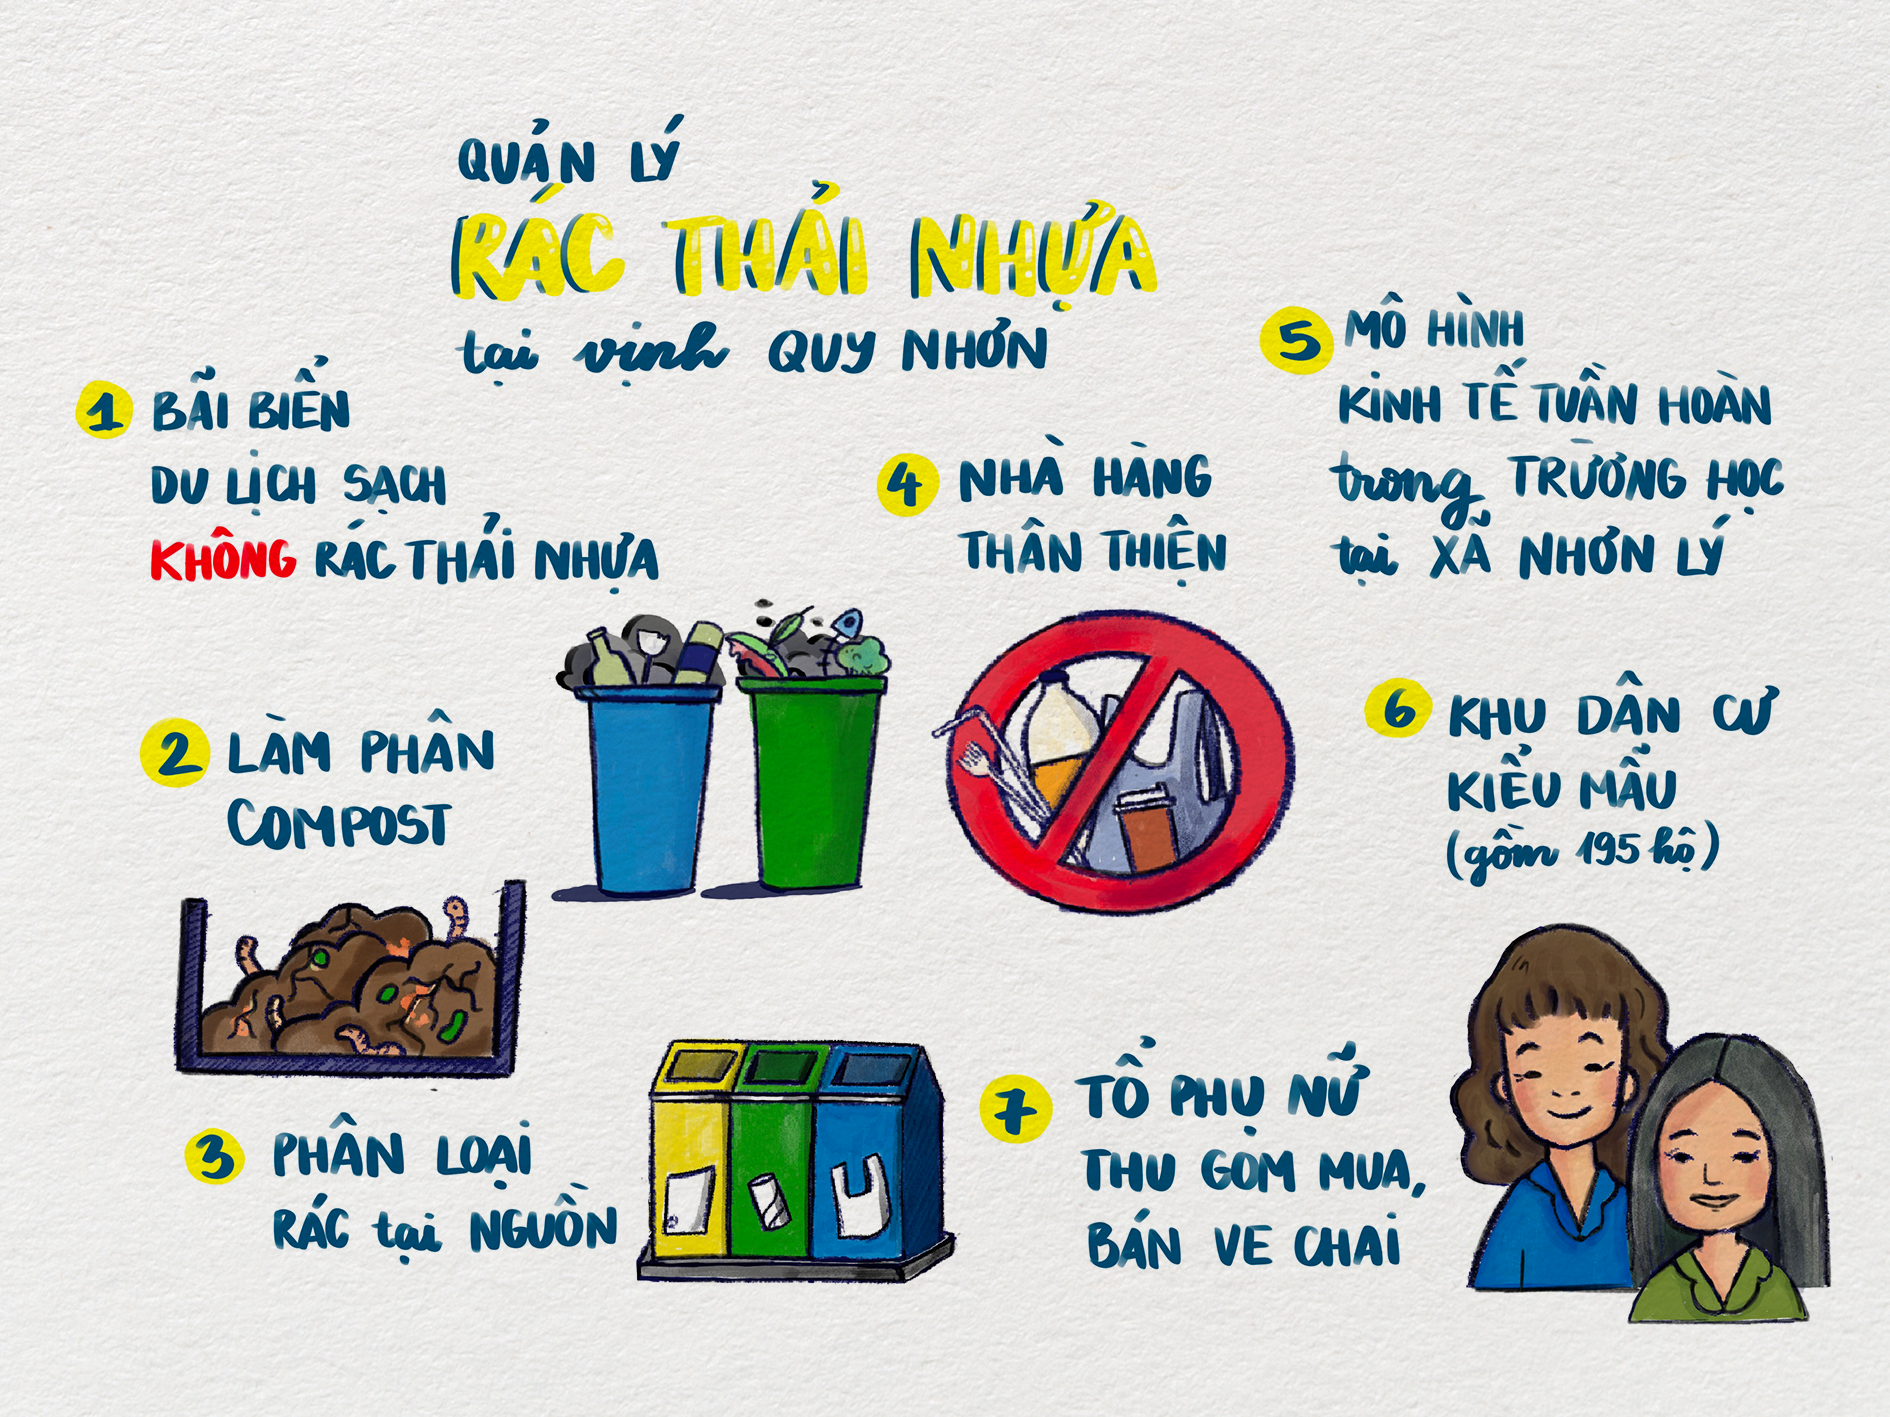 QUẢN LÝ
RÁC THẢI NHỰA
tại vịnh QUY NHƠN
1 BÃI BIỂN
DU LỊCH SẠCH
KHÔNG RÁC THẢI NHỰA
2 LÀM PHÂN
COMPOST
3 PHÂN LOẠI
RÁC tại NGUỒN
4 NHÀ HÀNG
THÂN THIỆN
5 MÔ HÌNH
KINH TẾ TUẦN HOÀN
trong TRƯỜNG HỌC
tại XÃ NHƠN LÝ
6 KHU DÂN CƯ
KIỂU MẪU
(gồm 195 hộ)
7 TỔ PHỤ NỮ
THU GOM MUA,
BÁN VE CHAI